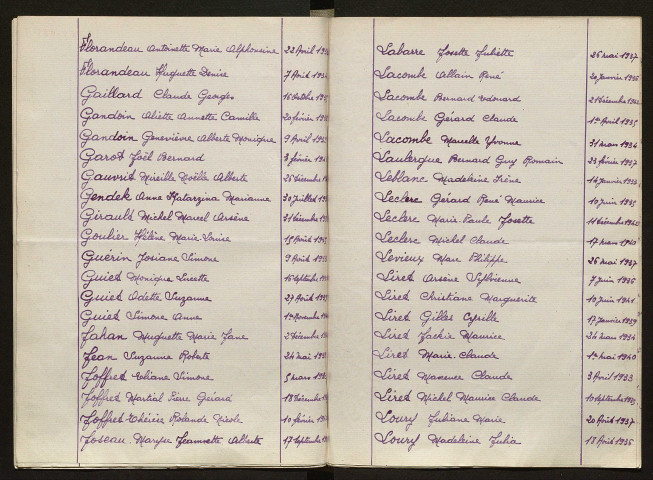 Florandeau Antoinette Marie Alphonsine 22 Avril
Florandeau Huguette Denise 7 Avril
Gaillard Claude Georges 16 octobre
Gandoin Aliette Annette Camille 20 février
Gandoin Geneviève Alberte Monique 9 Avril
Garot Joël Bernard 3 février
Gauvrit Mireille Noëlle Alberte 25 décembre
Gendek Anne Katarzina Marianne 30 juillet
Girault Michel Marcel Arsène 31 décembre
Goulier Hélène Marie-Louise 15 Août
Guérin Josiane Simone 9 Août
Guiet Monique Lucette 16 septembre
Guiet Odette Suzanne 27 Août
Guiet Simone Anne 1er Novembre
Jahan Huguette Marie Jane 2 décembre
Jean Suzanne Roberte 24 mai
Joffret Eliane Simone 5 mars
Joffret Martial 18 décembre
Joffret Rolande Nicole 10 février
Joseau Jeannette Alberte 17 septembre
Labarre Josette Juliette 26 mai 1937
Lacombe Allain René 20 janvier 1936
Lacombe Bernard Edouard 21 décembre
Lacombe Gérard Claude 1er Avril 1935
Lacombe Marcelle Yvonne 31 mars 1934
Laubergue Bernard Guy Romain 23 février 1937
Leblanc Madeleine Irène 14 janvier
Leclerc Gérard René Maurice 10 juin 1935
Leclerc Marie-Paule Josette 11 décembre
Leclerc Michel Claude 17 mars 1940
Levieux Marc Philippe 26 mai 1937
Liret Arsène Sylvienne 7 juin 1936
Liret Christiane Marguerite 10 juin 1941
Liret Gilles Cyrille 17 janvier 1939
Liret Jackie Maurice 24 mars 1934
Liret Marie-Claude 1er mai 1940
Liret Maxence Claude 3 Avril 1933
Liret Michel Maurice Claude 10 septembre
Loury Juliane Marie 20 Août 1937
Loury Madeleine Julia 18 Août 1936